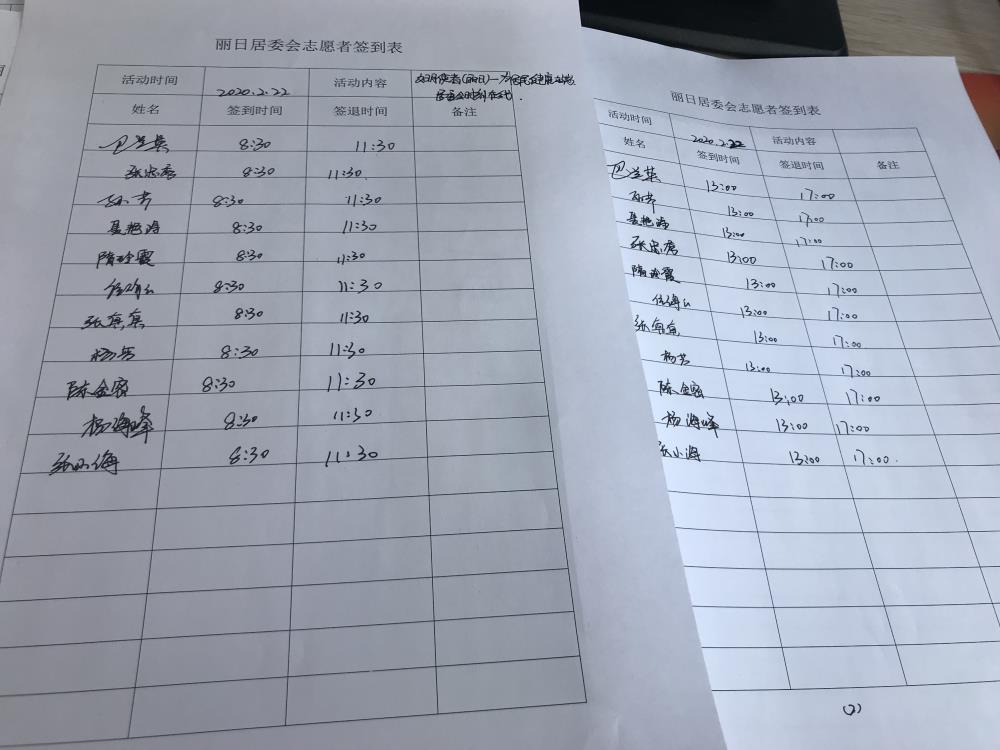 丽日居委会志愿者签到表
活动时间 2020.2.22 活动内容
姓名 签到时间 签退时间 备注
8:30 11:30
张忠唐 8:30 11:30
孙芳 8:30 11:30
聂艳海 8:30 11:30
隋玲霞 8:30 11:30
8:30 11:30
8:30 11:30
杨芳 8:30 11:30
陈金密 8:30 11:30
杨海峰 8:30 11:30
张小海 8:30 11:30
丽日居委会志愿者签到表
活动时间 2020.2.22 活动内容
姓名 签到时间 签退时间 备注
13:00 17:00
孙芳 13:00 17:00
聂艳海 13:00 17:00
张忠唐 13:00 17:00
隋玲霞 13:00 17:00
13:00 17:00
13:00 17:00
杨芳 13:00 17:00
陈金密 13:00 17:00
杨海峰 13:00 17:00
张小海 13:00 17:00
(2)